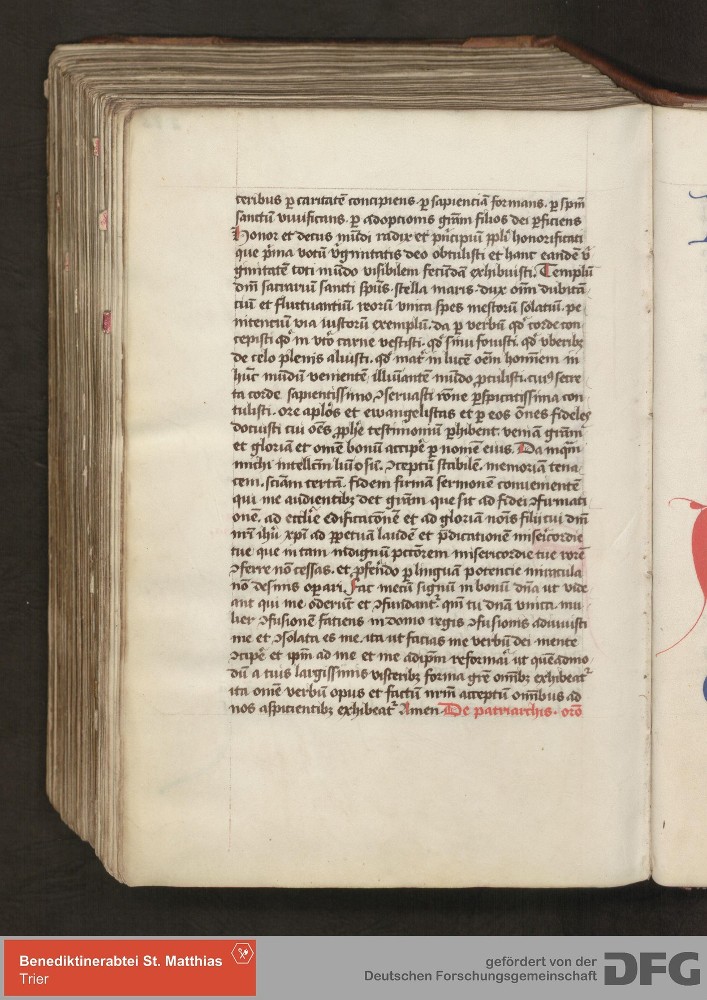 teribus ꝑ caritatē concipiens · ꝑ sapienciā formans · ꝑ spm̄
sanctū viuificans · ꝑ adopcionis gr̄am filios dei ꝑficiens
Honor et decus mūdi radix et pͥncipiū ppl̄i honorificati
que pͥma votū vͥgnitatis deo obtulisti et hanc eandē vͥ
gnitatē toti mūdo visibilem fecūdā exhibuisti. Templū
dm̄ sacrariū sancti spūs · stella maris · dux om̄ dubitā
ciū et fluctuantiū · reorū vnica spes mestorū solatiū · pe
nitenciū via iustorū exemplū · da ꝑ verbū qͦ corde con
cepisti qͦ in vtͦ carne vestisti · qͦ sinu fouisti · qͦ vberibꝫ
de celo plenis aluisti · qͦ matͥ in lucē oēm hom̄em in
hūc mūdiū venientē illuīantē mūdo ꝓtulisti · cuiꝰ secre
ta corde sapientissimo ꝯseruasti rōne ꝑspicatissima con
tulisti · ore apl̄os et ewangelistas et ꝑ eos ōnes fideles
docuisti cui oēs ꝓph̄e testimoniū ꝑhibent · veniam gr̄am
et gloriam et omē bonū accipe ꝑ nomē eius. Da inqͣm
michi intellcm̄ ꝯceptū stabilē · memoriam tena
cem · sciām certā · fidem firmā sermonē conuenientē
qui me audientibꝫ det gr̄am · que sit ad fidei ꝯfirmati
onē · ad eccl̄ie edificac̄onē et ad gloriam nōis filii tui dn̄i
nr̄i ih̄u xp̄i ad ꝑpetuā laudē et p̄dicationē miscͥcordie
tue que in tam indignū pctorem misericordie tue rorē
ꝯferre nō cessas · et ꝑ linguam potencie miracula
nō desinis oꝑari. Fac mecū signū in bonū dn̄a ut vide
ant qui me oderūt et ꝯfundantᷣ · qm̄ tu dn̄a vnica mu
lier ꝯfusionē faciens in domo regis ꝯfusionis adiuuisti
me et ꝯsolata es me · ita ut facias me verbū dei mente
ꝯcipe et ip̄m ad me et me ad ip̄m reformaͥ ut quēadmo
dū a tuis largissimis visceribꝫ forma gr̄e om̄ibꝫ exhibeatᷣ
ita omē verbū opus et factū nr̄m acceptū om̄ibus ad
nos aspicientibꝫ exhibeatᷣ Amen De patriarchis · orō
Benediktinerabtei St. Matthias
Trier
gefördert von der
Deutschen Forschungsgemeinschaft
DFG